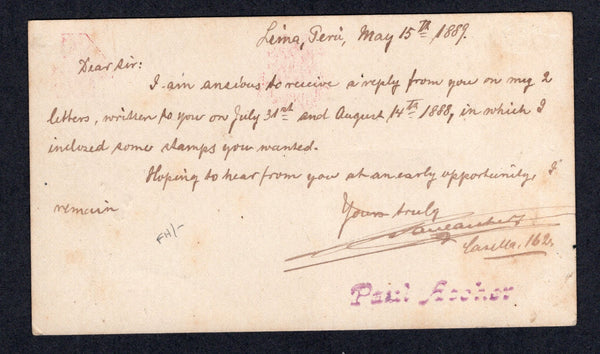 Lima, Perú, May 15th 1889.
Dear Sir:
I am anxious to receive a reply from you on my 2
letters, written to you on July 31st and August 14th 1888, in which I
inclozed some stamps you wanted.
Hoping to hear from you at an early opportunity, I
remain
Yours truly
Casilla. 162.
FH/-
Paul Ascher